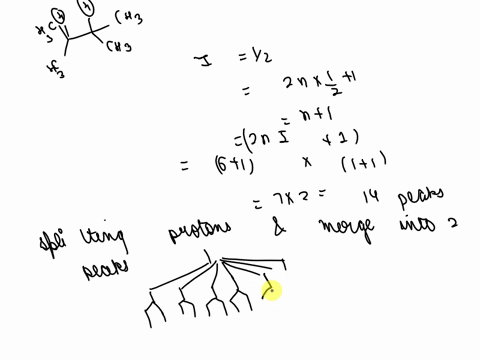 H H
H₃C CH₃
CH₃
H₃
I = 1/2
= 2n × 1/2 + 1
= n+1
= (2n I + 1)
= (6+1) × (1+1)
= 7 × 2 = 14 peaks
spli tting protons & merge into 2
peaks